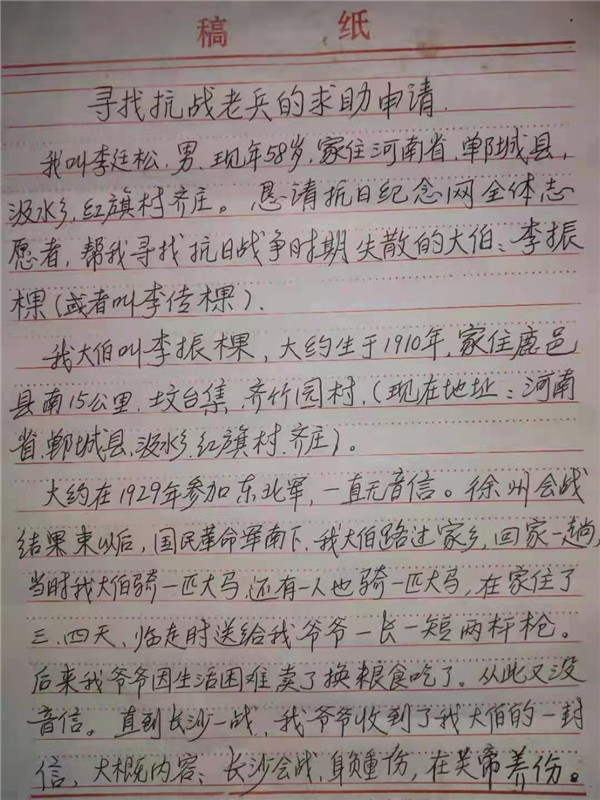 稿 纸
寻找抗战老兵的求助申请.
我叫李廷松,男、现年58岁,家住河南省,郸城县,
汲水乡,红旗村齐庄。恳请抗日纪念网全体志
愿者,帮我寻找抗日战争时期失散的大伯:李振
棵(或者叫李传棵).
我大伯叫李振棵,大约生于1910年,家住鹿邑
县南15公里,坟台集,齐竹园村,(现在地址:河南
省,郸城县,汲水乡,红旗村,齐庄)。
大约在1929年参加东北军,一直无音信。徐州会战
结果束以后,国民革命军南下,我大伯路过家乡,回家一趟,
当时我大伯骑一匹大马,还有一人也骑一匹大马,在家住了
三、四天、临走时送给我爷爷一长一短两杆枪。
后来我爷爷因生活困难卖了换粮食吃了。从此又没
音信。直到长沙一战,我爷爷收到了我大伯的一封
信,大概内容:长沙会战,身负重伤,在关帝养伤。